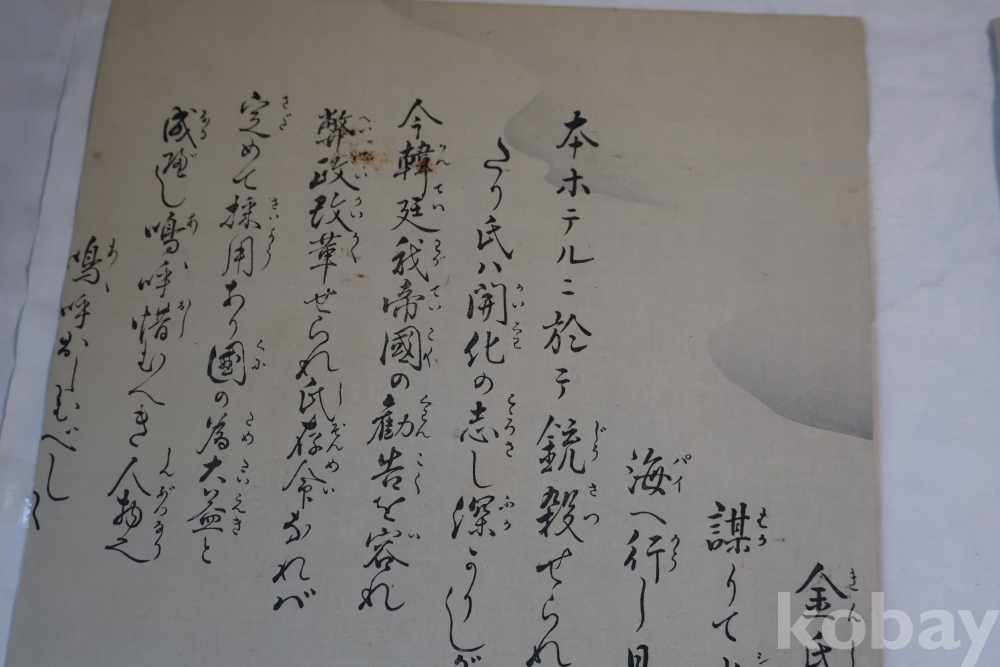 金氏
謀りて
海へ行し
本ホテルニ於テ銃殺せられ
たり氏ハ開化の志し深かりしが
今韓廷我帝國の勸告を容れ
弊政改革せられ氏存命なれバ
定めて採用あり國の為大益と
成べし嗚呼惜むへき人物也
嗚呼おしむべし〱
kobay